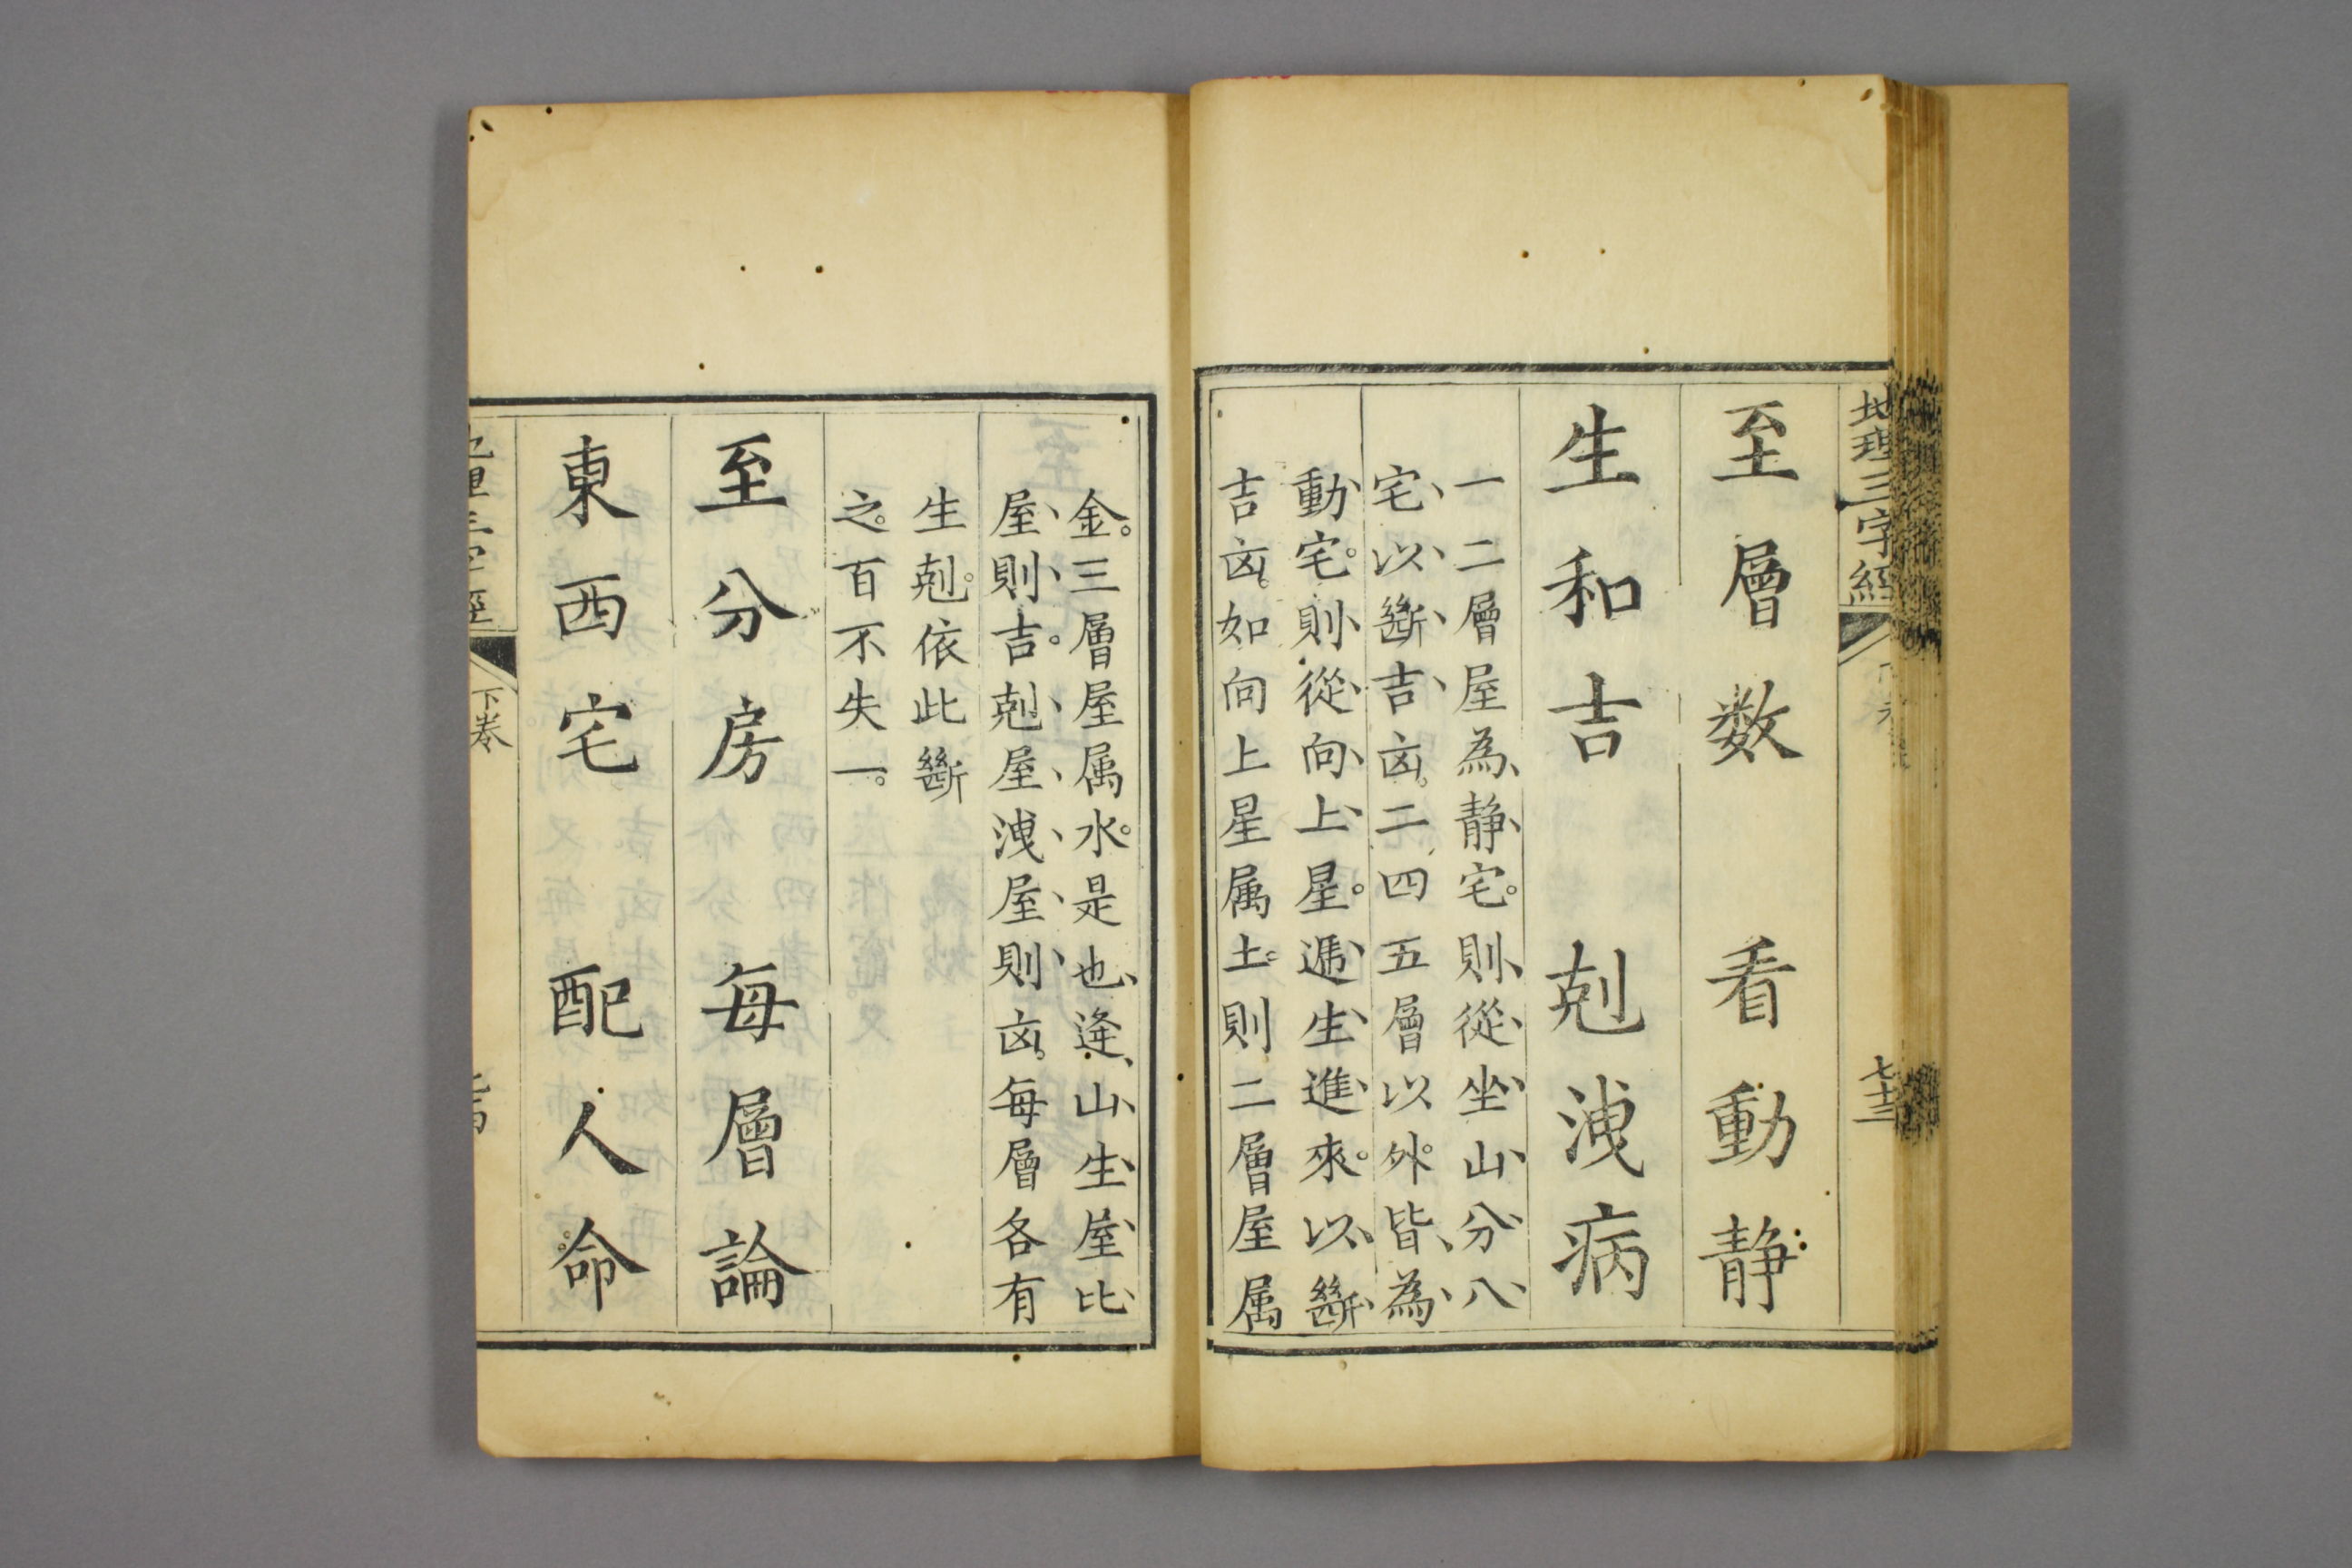 地理三字經
七十三
至層数　看動静
生和吉　剋洩病
一二層屋為静宅。則從坐山分八
宅以斷吉凶。二四五層以外。皆為
動宅。則從向上星。遞生進來。以斷
吉凶。如向上星属土。則二層屋属
金。三層屋属水。是也、逢山生屋比
屋則吉。剋屋洩屋則凶。每層各有
生剋。依此斷
之。百不失一。
至分房　每層論
東西宅　配人命
下卷